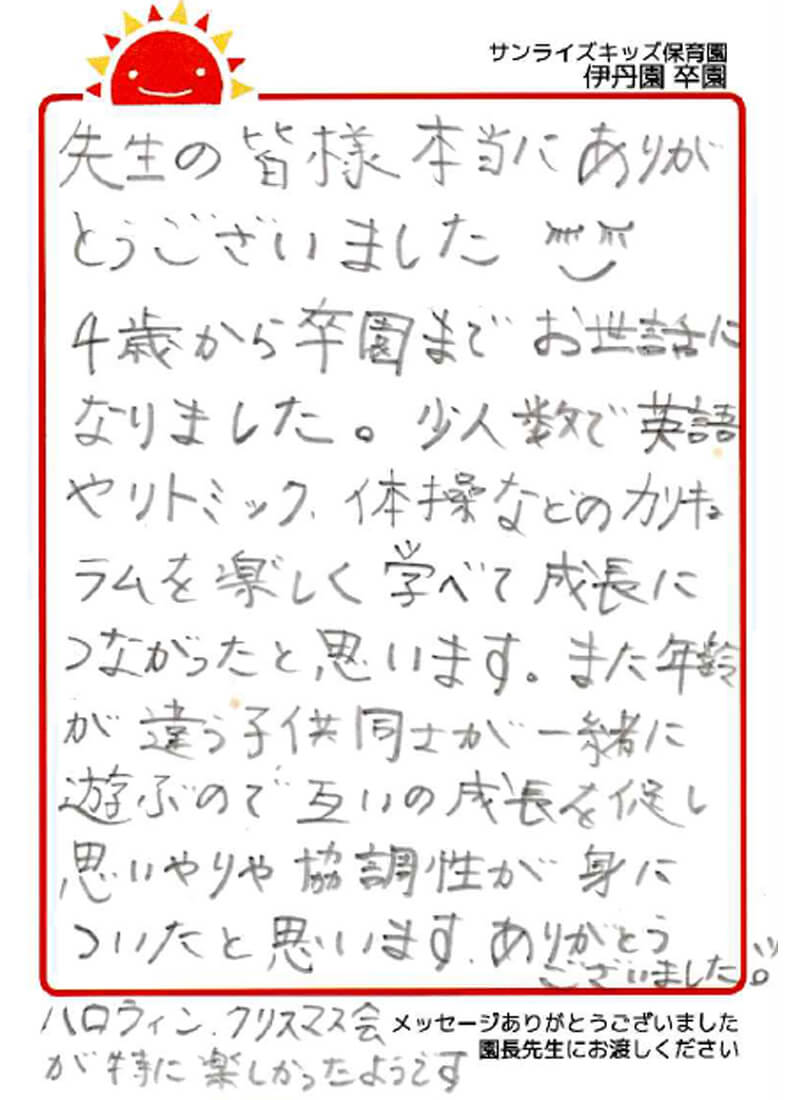 サンライズキッズ保育園
伊丹園 卒園
先生の皆様 本当にありが
とうございました
4歳から卒園まで お世話に
なりました。少人数で英語
やリトミック、体操などのカリキュ
ラムを楽しく学べて成長に
つながったと思います。また年齢
が違う子供同士が一緒に
遊ぶので互いの成長を促し
思いやりや協調性が身に
ついたと思います。ありがとう
ございました。
ハロウィン、クリスマス会
が特に楽しかったようです
メッセージありがとうございました
園長先生にお渡しください